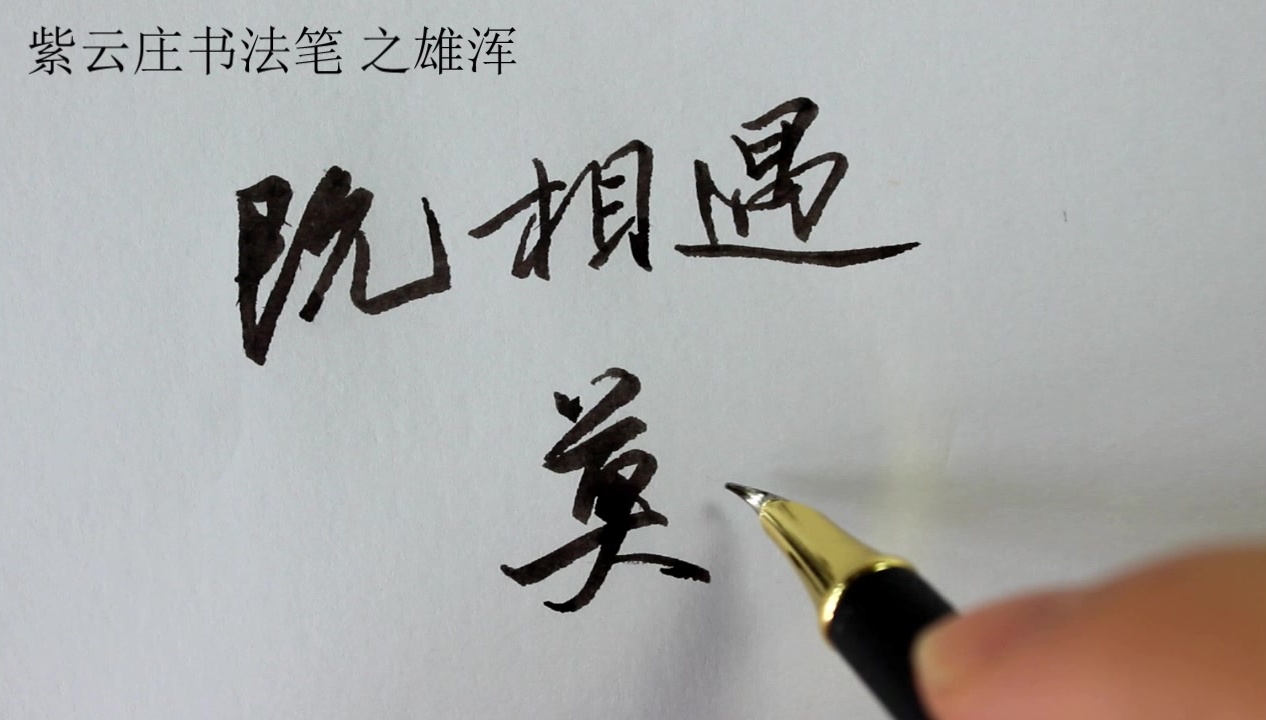 紫云庄书法笔 之雄浑
既相遇
莫